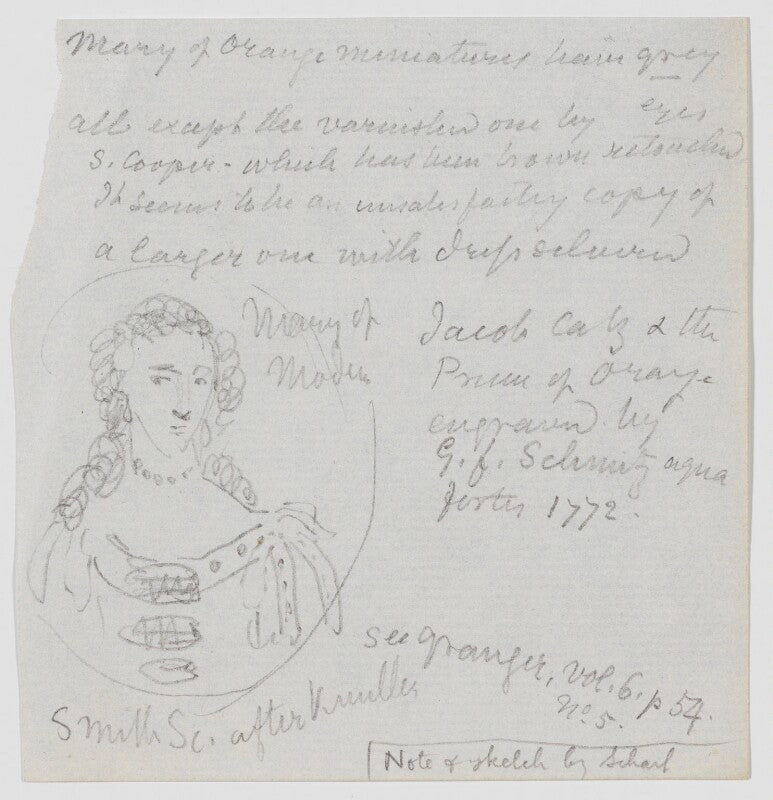 Mary of Orange miniatures have grey
eyes
all except the varnished one by
S. Cooper - which has been brown retouched
It seems to be an unsatisfactory copy of
a larger one with dress
Mary of
Modena
Jacob Catz & the
Prince of Orange
engraved by
G. f. Schmitz aqua
fortis 1772.
see Granger, vol. 6. p 54.
No. 5.
Smith Sc. after Kneller
Note & sketch by Scharf